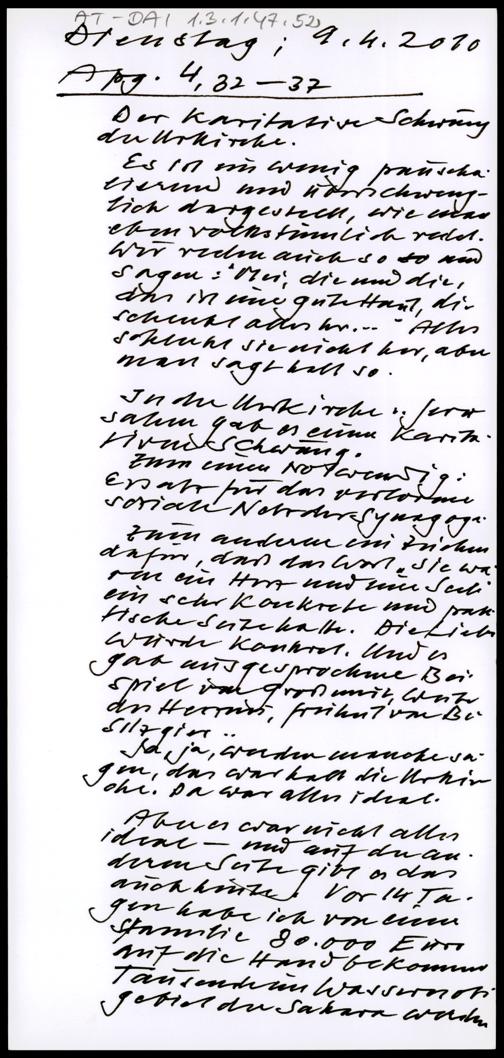 AT-DAI 1.3.1.47.52
Dienstag; 9.4.2010
Apg. 4,32-37
Der karitative Schwung
der Urkirche.
Es ist ein wenig pauscha-
lierend und überschweng-
lich dargestellt, wie man
eben volkstümlich redet.
Wir reden auch so und
sagen: "Mei, die und die,
das ist eine gute Haut, die
schenkt alles her..." Alles
schenkt sie nicht her, aber
man sagt halt so.
In der Urkirche v. Jeru
salem gab es einen karita-
tiven Schwung.
Zum einen Notwendig:
Ersatz für das verlorene
soziale Netz der Synagoge.
Zum anderen ein Zeichen
dafür, daß das Wort "Sie wa-
ren ein Herz und eine Seele
ein sehr konkrete und prak
tische Seite hatte. Die Liebe
wurde konkret. Und es
gab ausgesprochene Bei-
spiel von Großmut, Weite
des Herzens, freiheit von Be
sitzgier..
Ja, ja, werden manche sa-
gen, das war halt die Urkir
che. Da war alles ideal.
Aber es war nicht alles
ideal - und auf der an-
deren Seite gibt es das
auch heute. Vor 14 Ta-
gen habe ich von einer
Familie 80.000 Euro
auf die Hand bekommen
Tausende im Wassernot
gebiet der Sahara werden